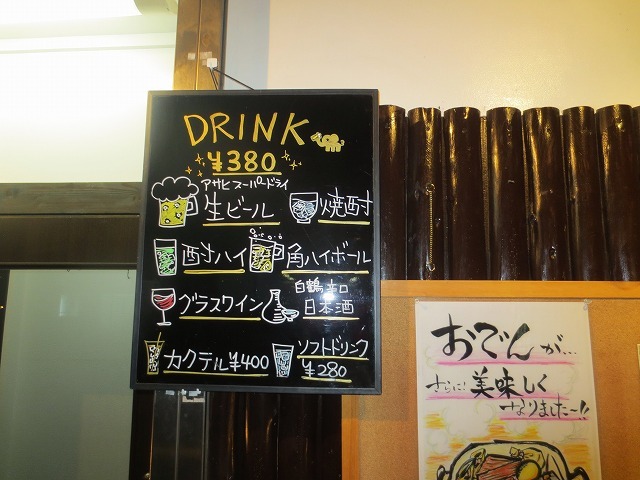 DRINK
¥380
アサヒスーパードライ
生ビール
焼酎
酎ハイ
角ハイボール
グラスワイン
白鶴辛口
日本酒
カクテル¥400
ソフトドリンク
¥280
おでんが…
さらに!美味しく
なりました〜!!